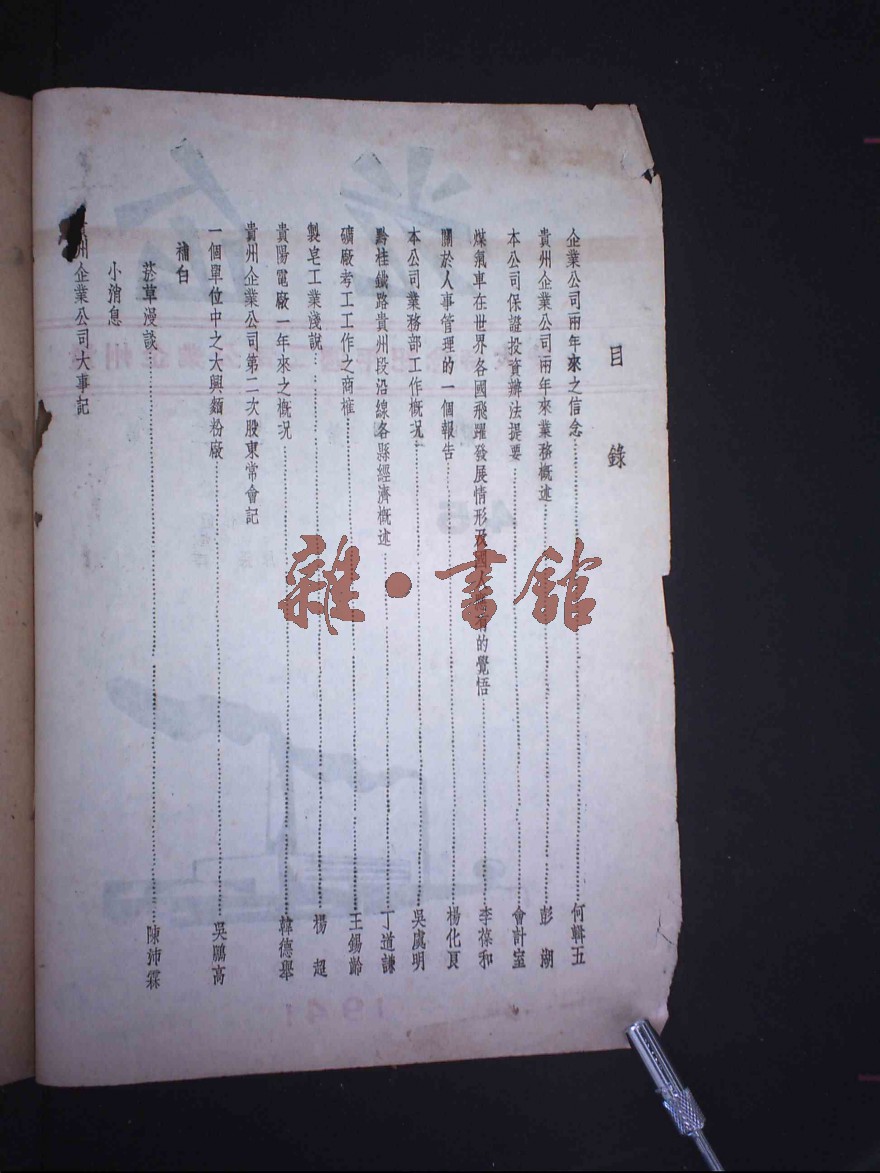 目錄
企業公司兩年來之信念 何輯五
貴州企業公司兩年來業務概述 彭湖
本公司保證投資辦法提要 會計室
煤氣車在世界各國飛躍發展情形及國人 的覺悟 李葆和
關於人事管理的一個報告 楊化育
本公司業務部工作概況 吳虞明
黔桂鐵路貴州段沿線各縣經濟概述 丁道謙
礦廠考工工作之商榷 王錫齡
製皂工業淺說 楊超
貴陽電廠一年來之概況 韓德舉
貴州企業公司第二次股東常會記
一個單位中之大興麵粉廠 吳鵬高
補白
菸草漫談 陳沛霖
小消息
州企業公司大事記
雜·書館
1941